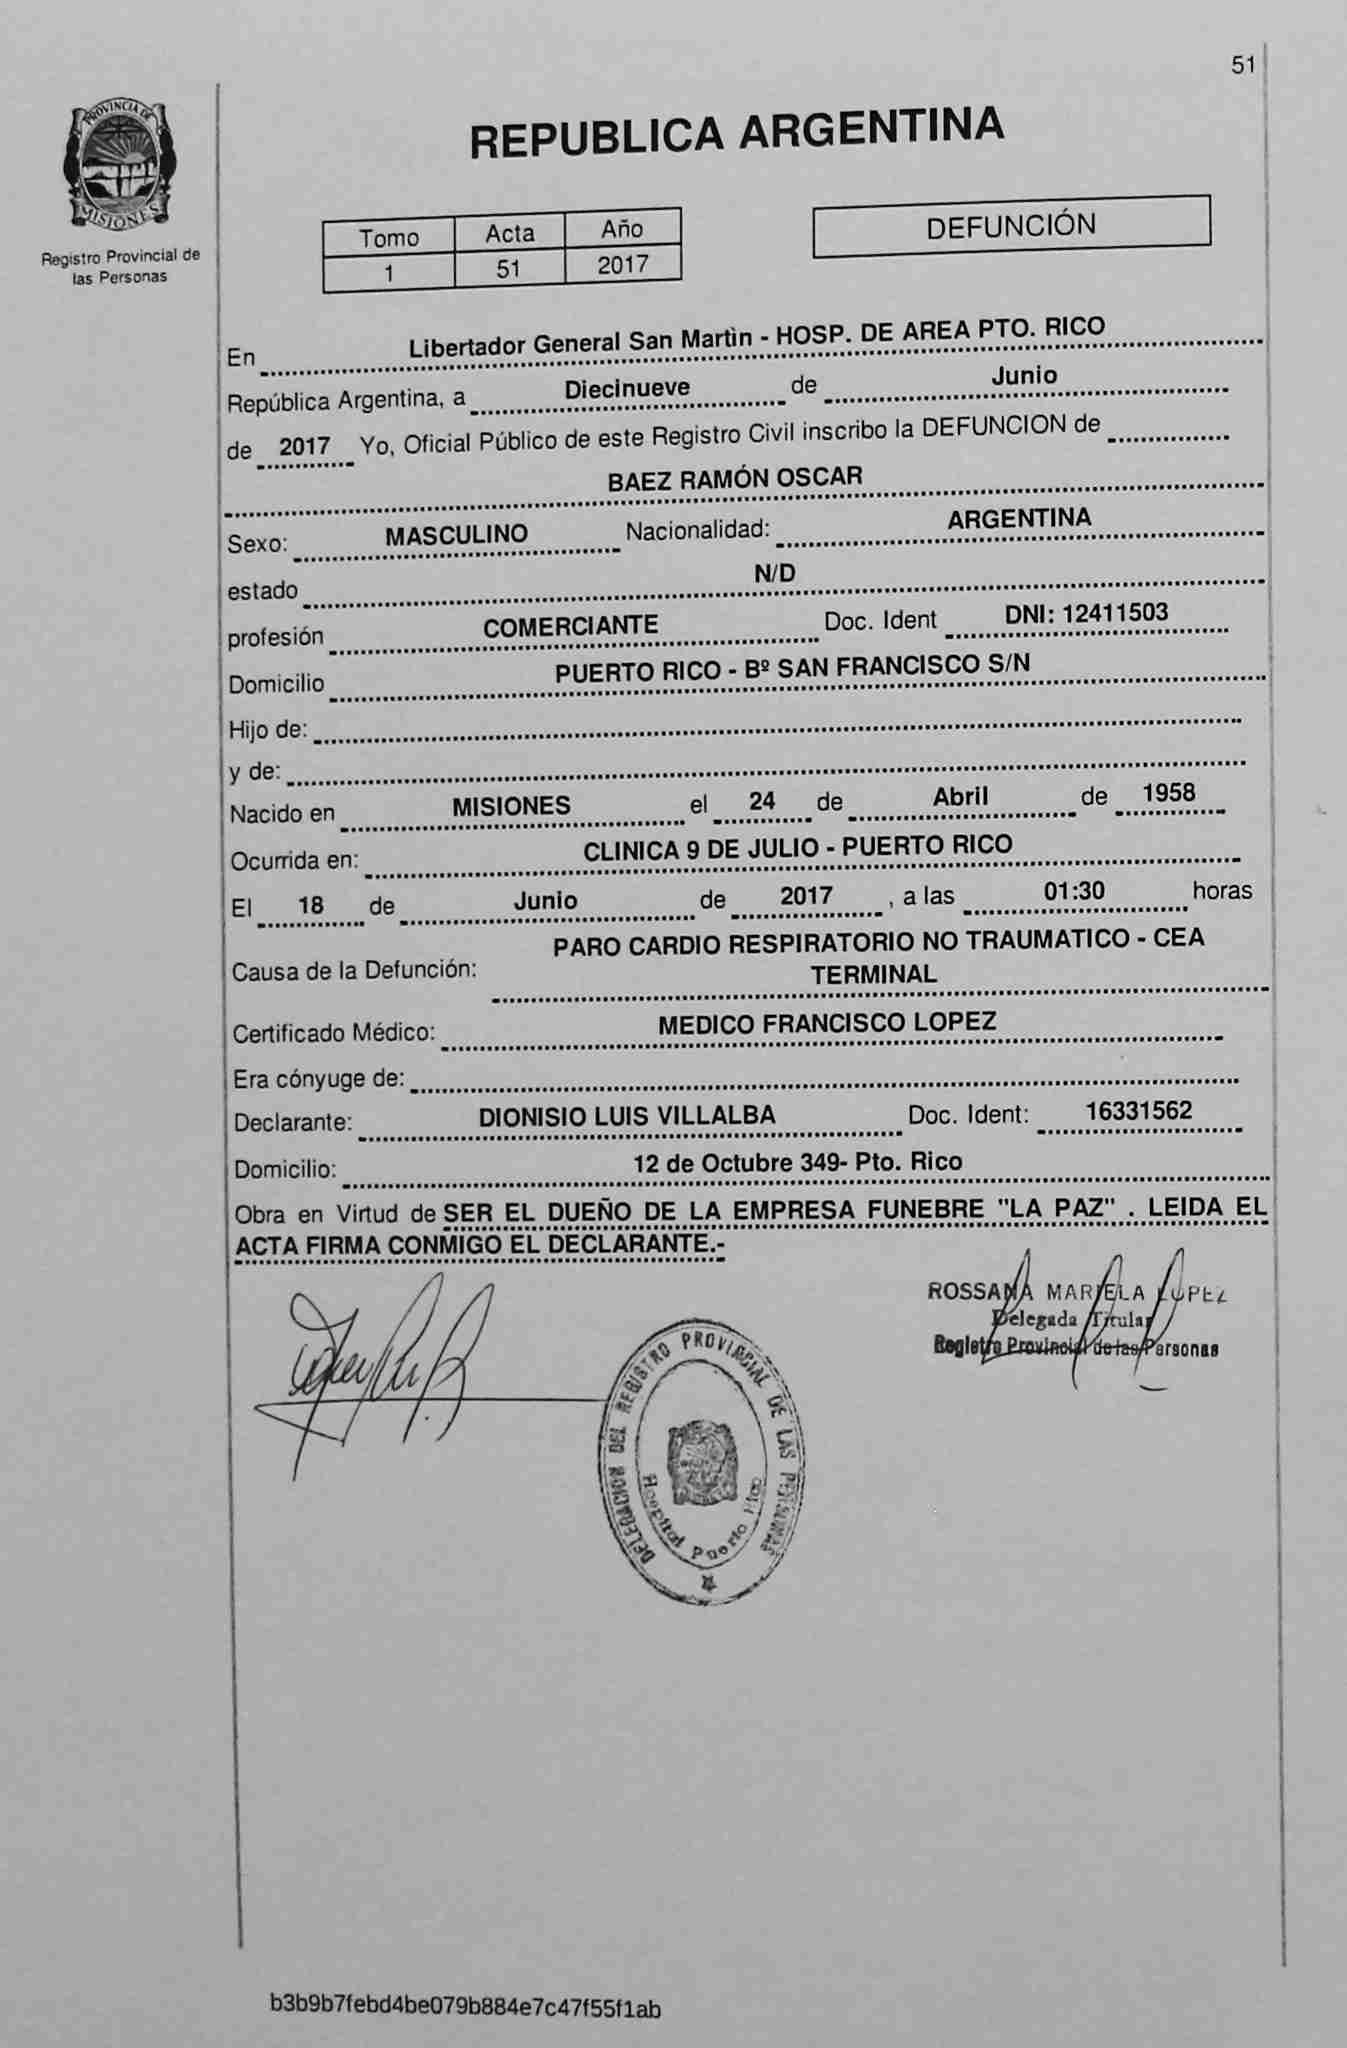 51
PROVINCIA DE
MISIONES
Registro Provincial de
las Personas
REPUBLICA ARGENTINA
Tomo Acta Año
1 51 2017
DEFUNCIÓN
En Libertador General San Martìn - HOSP. DE AREA PTO. RICO
República Argentina, a Diecinueve de Junio
de 2017 Yo, Oficial Público de este Registro Civil inscribo la DEFUNCION de
BAEZ RAMÓN OSCAR
Sexo: MASCULINO Nacionalidad: ARGENTINA
estado N/D
profesión COMERCIANTE Doc. Ident DNI: 12411503
Domicilio PUERTO RICO - Bº SAN FRANCISCO S/N
Hijo de:
y de:
Nacido en MISIONES el 24 de Abril de 1958
Ocurrida en: CLINICA 9 DE JULIO - PUERTO RICO
El 18 de Junio de 2017 , a las 01:30 horas
Causa de la Defunción: PARO CARDIO RESPIRATORIO NO TRAUMATICO - CEA
TERMINAL
Certificado Médico: MEDICO FRANCISCO LOPEZ
Era cónyuge de:
Declarante: DIONISIO LUIS VILLALBA Doc. Ident: 16331562
Domicilio: 12 de Octubre 349- Pto. Rico
Obra en Virtud de SER EL DUEÑO DE LA EMPRESA FUNEBRE "LA PAZ" . LEIDA EL
ACTA FIRMA CONMIGO EL DECLARANTE.-
ROSSANA MARIELA LOPEZ
Delegada Titular
Registro Provincial de las Personas
DELEGACION DEL REGISTRO PROVINCIAL DE LAS PERSONAS
Hospital Puerto Rico
b3b9b7febd4be079b884e7c47f55f1ab